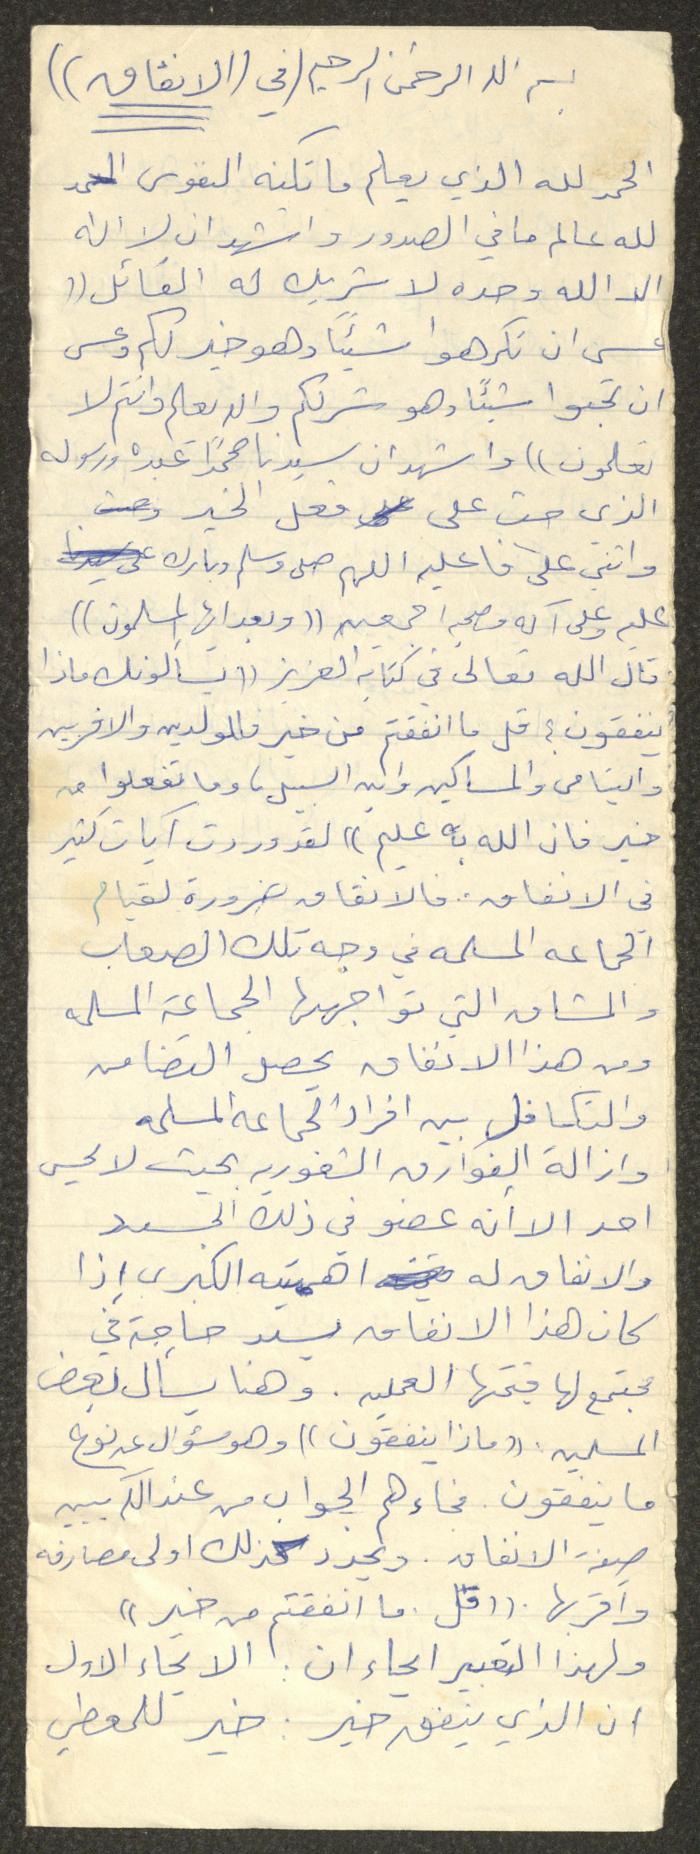 بسم الله الرحمن الرحيم (في (الانفاق))
الحمد لله الذي يعلم ما تكنه النفوس الحمد
لله عالم ما في الصدور واشهد ان لا اله
الا الله وحده لا شريك له القائل ((
عسى ان تكرهوا شيئًا وهو خير لكم وعسى
ان تحبوا شيئًا وهو شر لكم والله يعلم وانتم لا
تعلمون)) واشهد ان سيدنا محمدًا عبده ورسوله
الذي حث على فعل الخير وحث
واثنى على فاعليه اللهم صلي وسلم وبارك
عليه وعلى آله وصحبه اجمعين ((وبعد ايها المسلمون))
قال الله تعالى في كتابه العزيز ((يسألونك ماذا
ينفقون؟ قل ما انفقتم من خير فللوالدين والاقربين
واليتامى والمساكين وابن السبيل، وما تفعلوا من
خير فان الله به عليم)) لقد وردت آيات كثير
في الانفاق.. فالانفاق ضرورة لقيام
الجماعه المسلمه في وجه تلك الصعاب
والمشاق التي تواجهها الجماعة المسلمه
ومن هذا الانفاق يحصل التضامن
والتكافل بين افراد الجماعه المسلمه
وازالة الفوارق الشعوريه بحيث لا يحس
احد الا أنه عضو في ذلك الجسد
والانفاق له اهميته الكبرى إذا
كان هذا الانفاق يسد حاجة في
مجتمع لها قيمتها العمليه. وهنا يسأل بعض
المسلمين. ((ماذا ينفقون)) وهو سؤال عن نوع
ما ينفقون. فجاءهم الجواب من عند الله يبين
صفة الانفاق. ويحدد كذلك اولى مصارفه
واقربها. ((قل. ما انفقتم من خير))
ولهذا التعبير ايحاءان: الايحاء الاول
ان الذي ينفق خير: خير للمعطي